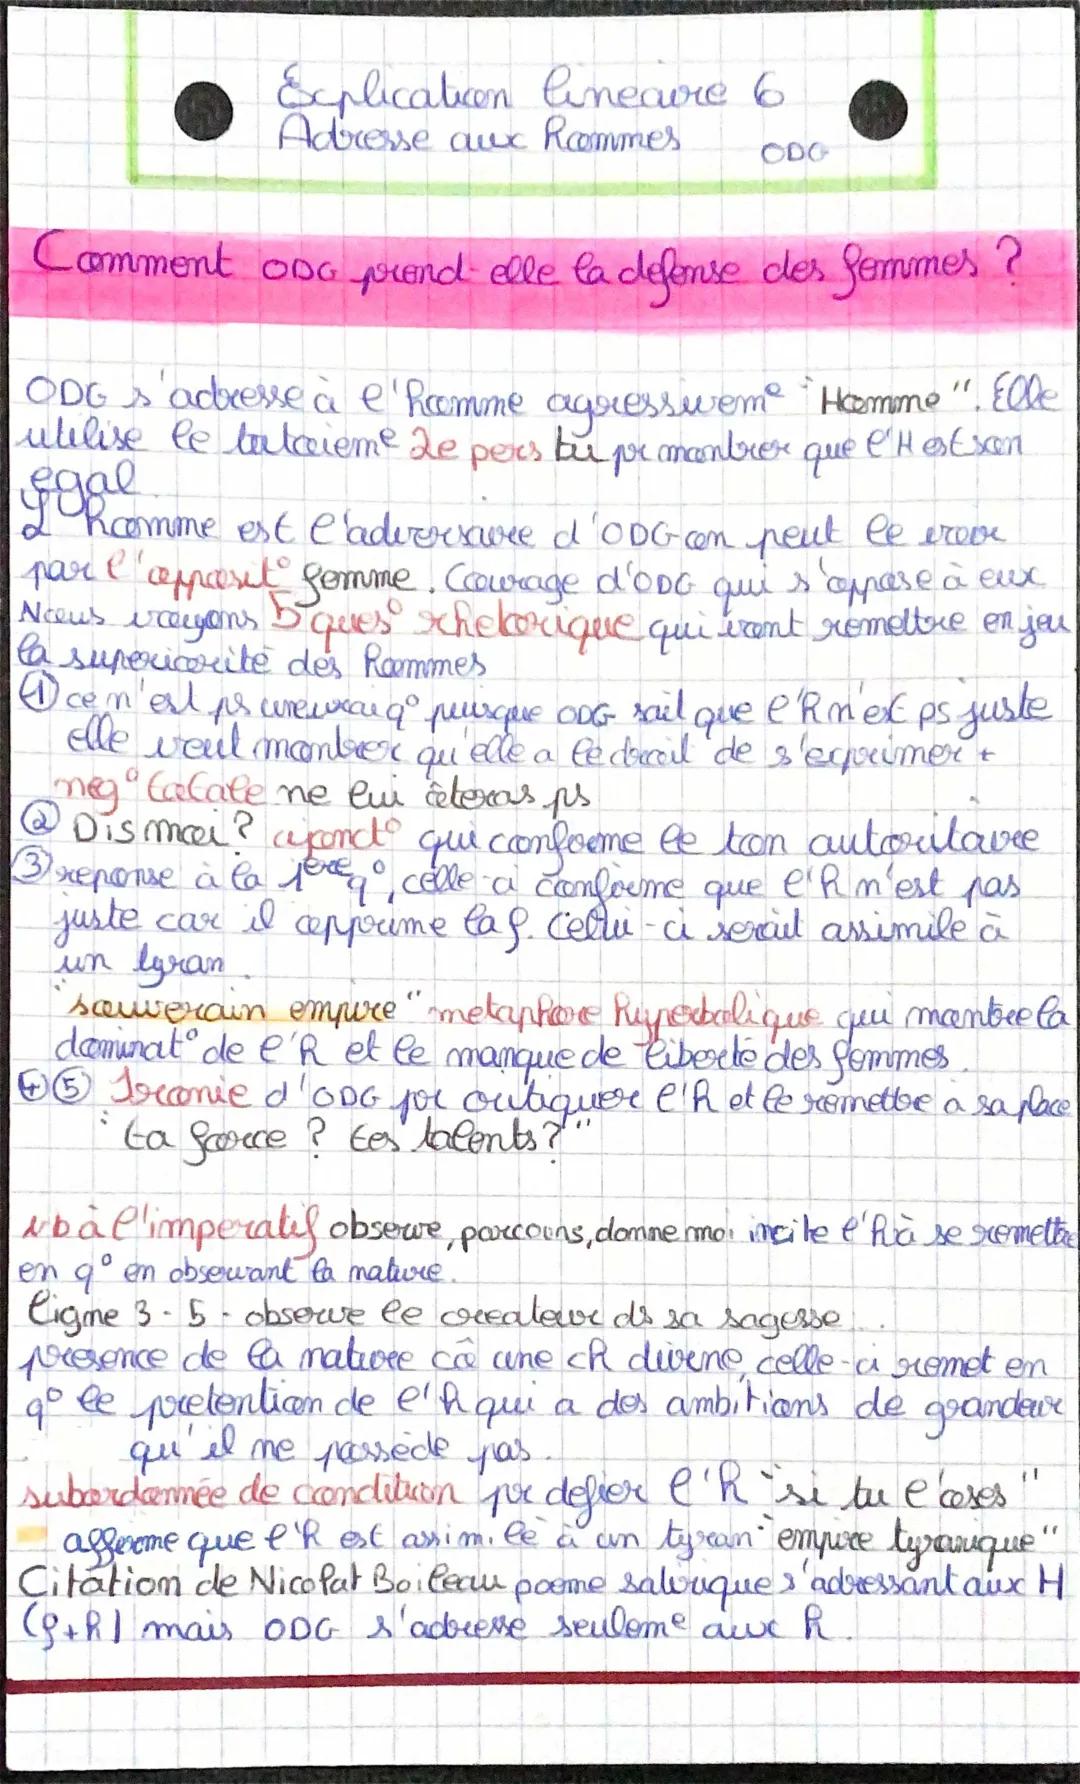 Explication lineaire 6
Adresse aux hommes ODG
Comment ODG prend-elle la defense des femmes ?
ODG s'adresse à l'homme agressiveme "Homme". Elle
utilise le tutoieme 2e pers tu pr montrer que l'H est son
egal
L'homme est l'adversaire d'ODG on peut le croire
par l'opposit° femme. Courage d'ODG qui s'oppose à eux
Nous voyons 5 ques° rhetorique qui vont remettre en jeu
la superiorité des hommes
① ce n'est ps une vrai q° puisque ODG sait que l'h n'est ps juste
elle veut montrer qu'elle a le droit de s'exprimer +
neg° totale ne lui oteras ps
② Dis moi ? injonct° qui confirme le ton autoritaire
③ reponse à la 1ere q°, celle-ci confirme que l'h n'est pas
juste car il opprime la f. Celui-ci serait assimile à
un tyran.
"souverain empire" metaphore hyperbolique qui montre la
dominat° de l'h et le manque de liberté des femmes.
④⑤ Ironie d'ODG pr critiquer l'h et le remettre à sa place
"ta force ? tes talents ?"
vb à l'imperatif observe, parcours, donne moi incite l'h à se remettre
en q° en observant la nature.
ligne 3-5 - observe le createur ds sa sagesse...
presence de la nature cô une ch divine, celle-ci remet en
q° le pretention de l'h qui a des ambitions de grandeur
qu'il ne possède pas.
subordonnée de condition pr defier l'h "si tu l'oses"
affirme que l'h est assimilé à un tyran "empire tyranique"
Citation de Nicolat Boileau poeme satirique s'adressant aux H
(f+h) mais ODG s'adresse seuleme aux h.